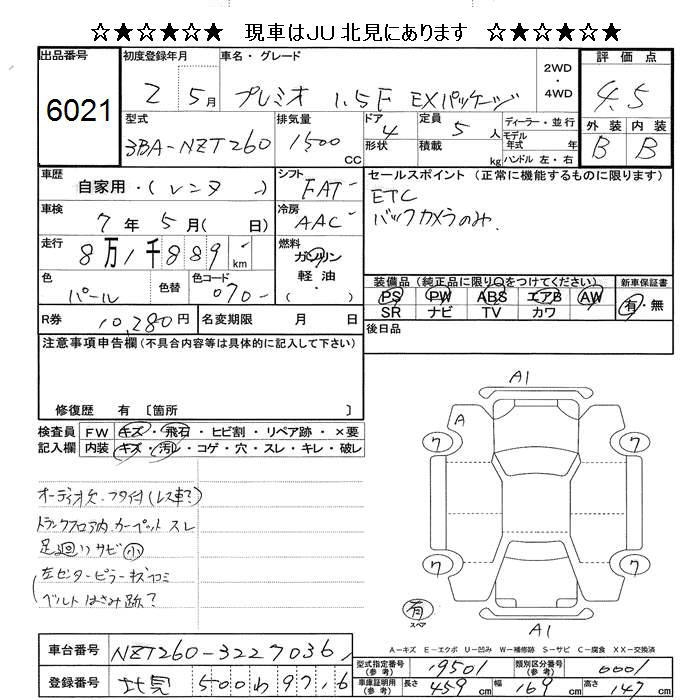 ☆★☆★☆★ 現車はJU北見にあります ☆★☆★☆★
出品番号
6021
初度登録年月
2 5月
車名・グレード
プレミオ 1.5F EXパッケージ
2WD
・
4WD
評価点
4.5
外装 内装
B B
型式
3BA-NZT260
排気量
1500
CC
ドア
4
形状
定員
5人
積載
kg
ディーラー・並行
モデル
年式 年
ハンドル 左・右
車歴
自家用・(レンタ )
シフト
FAT
セールスポイント (正常に機能するものに限ります)
ETC
バックカメラのみ.
車検
7年5月( 日)
冷房
AAC
走行
8万1千889km
燃料
ガソリン
軽油
・( )
色
パール
色替
色コード
070
装備品(純正品に限り○をつけてください)
PS PW ABS エアB AW
SR ナビ TV カワ
新車保証書
有・無
R券
10,280円
名変期限 月 日
後日品
注意事項申告欄(不具合内容等は具体的に記入して下さい)
修復歴 有 〔箇所 〕
検査員
記入欄
FW キズ・飛石・ヒビ割・リペア跡・×要
内装 キズ・汚レ・コゲ・穴・スレ・キレ・破レ
オーディオ欠・フタ付(レス車?)
トランクフロア内カーペットスレ
足廻りサビ小
左センターピラーキズカミ
(ベルトはさみ跡?
A1
A
7
7
7
7
有
スペア
A1
A-キズ E-エクボ U-凹み W-補修跡 S-サビ C-腐食 XX-交換済
車台番号
NZT260-3227036
登録番号
北見 500わ9716
型式指定番号
(参考)
19501
類別区分番号
(参考)
0001
車庫証明用
(参考)
長さ 459cm 幅 169cm 高さ 147cm